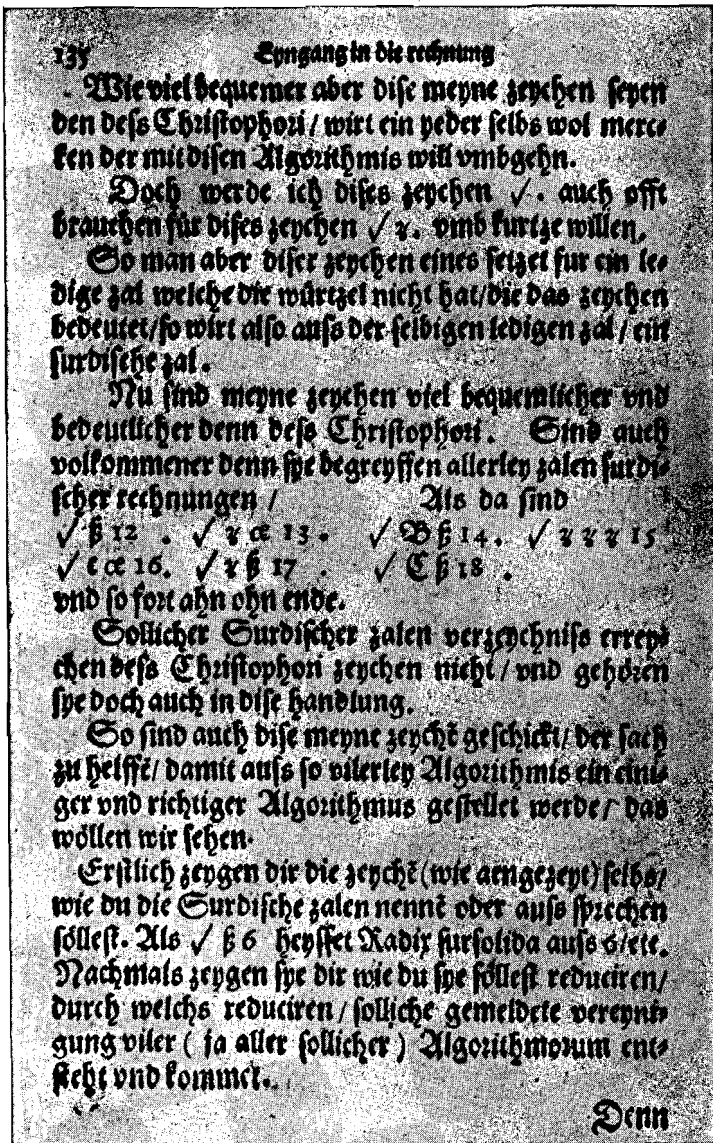 135 Eyngang in die rechnung
Wie viel bequemer aber dise meyne zeychen seyen
den dess Christophori / wirt ein yeder selbs wol merc⸗
ken der mit disen Algorithmis will vmbgehn.
Doch werde ich dises zeychen √. auch offt
brauchen für dises zeychen √ ʒ. vmb kurtze willen.
So man aber diser zeychen eines setzet fur ein le⸗
dige zal welche die würtzel nicht hat/die das zeychen
bedeutet/so wirt also auss der selbigen ledigen zal / ein
surdische zal.
Nu sind meyne zeychen viel bequemlicher vnd
bedeutlicher denn dess Christophori. Sind auch
volkommener denn sye begreyffen allerley zalen surdi⸗
scher rechnungen / Als da sind
√ ß 12 . √ ʒ cſ 13 . √ B ß 14. √ ʒ ʒ ʒ 15
√ c cſ 16. √ ʒ ß 17 . √ C ß 18 .
vnd so fort ahn ohn ende.
Sollicher Surdischer zalen verzeychniss errey⸗
chen dess Christophori zeychen nicht / vnd gehören
sye doch auch in dise handlung.
So sind auch dise meyne zeychē geschickt/ der sach
zu helffē/ damit auss so vilerley Algorithmis ein eini⸗
ger vnd richtiger Algorithmus gestellet werde/ das
wöllen wir sehen.
Erstlich zeygen dir die zeychē (wie aengezeyt) selbs/
wie du die Surdische zalen nennē oder auss sprechen
söllest. Als √ ß 6 heysset Radix sursolida auss 6/etc.
Nachmals zeygen sye dir wie du sye söllest reduciren/
durch welchs reduciren / solliche gemeldete vereyni⸗
gung viler ( ja aller sollicher ) Algorithmorum ent⸗
steht vnd kommet.
Denn